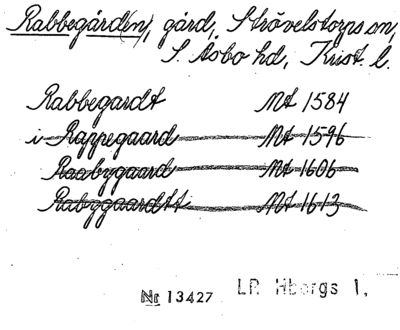 Rabbegård(en), gård, Strövelstorps sn,
S. Åsbo hd, Krist. l.
Rabbegardt Mt 1584
i Rappegaard Mt 1596
Raabygaard Mt 1606
Rabygaardtt Mt 1613
Nr 13427 LP. Hborgs l,